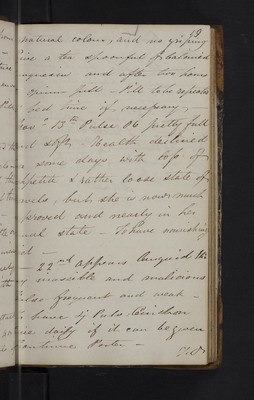 9
natural colour, and no griping
Give a tea spoonful of Calcined
magnesia and after two hours
opium pill – Pill to be repeated
bed time if necessary,
13th Pulse 86 pretty full
and soft. Health declined
some days with loss of
appetite & rather loose state of
bowels, but she is now much
improved and nearly in her
usual state – To have nourishing
22nd appears languid
irascible and malicious
Pulse frequent and weak –
have Pulv. Cinchon
twice daily if it can be given
Continue Porter –